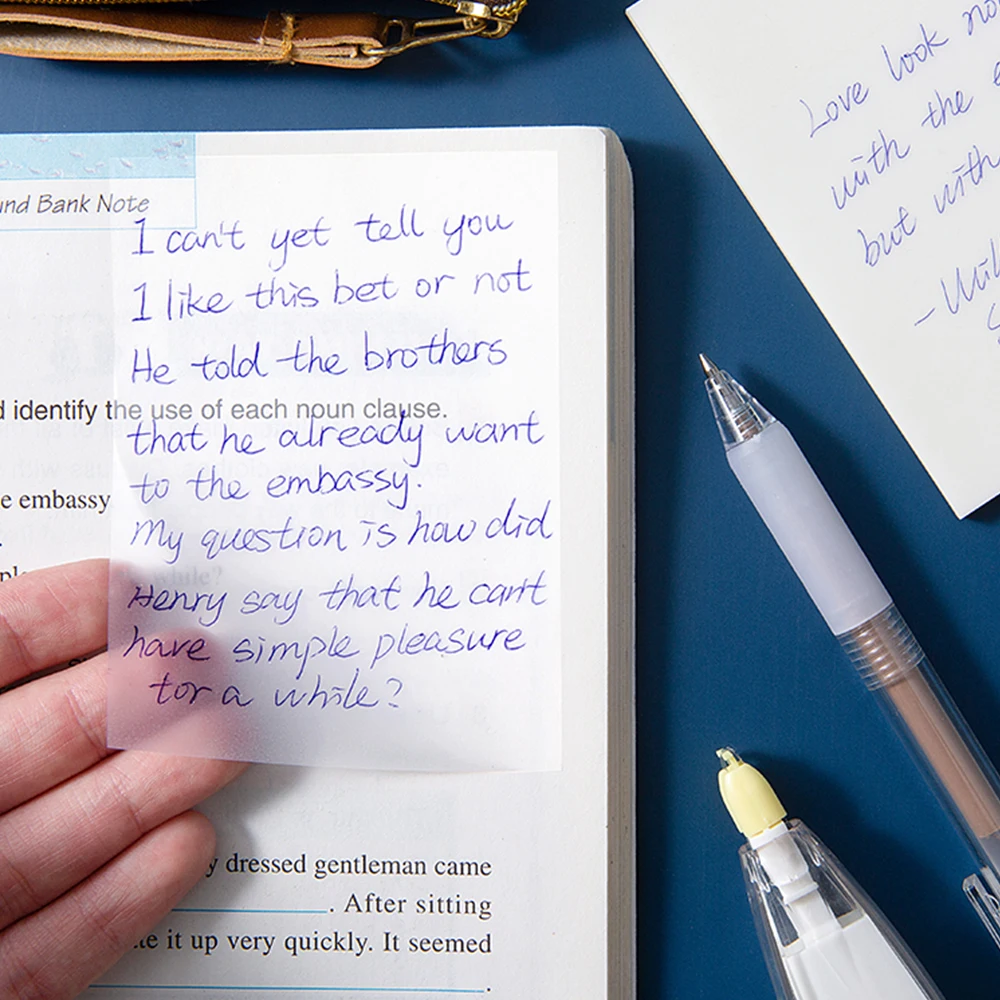 und Bank Note
I can't yet tell you
I like this bet or not
He told the brothers
d identify the use of each noun clause.
that he already want
e embassy
to the embassy.
My question is how did
while?
Henry say that he can't
have simple pleasure
for a while?
y dressed gentleman came
. After sitting
te it up very quickly. It seemed
.
Love look no
with the e
but with